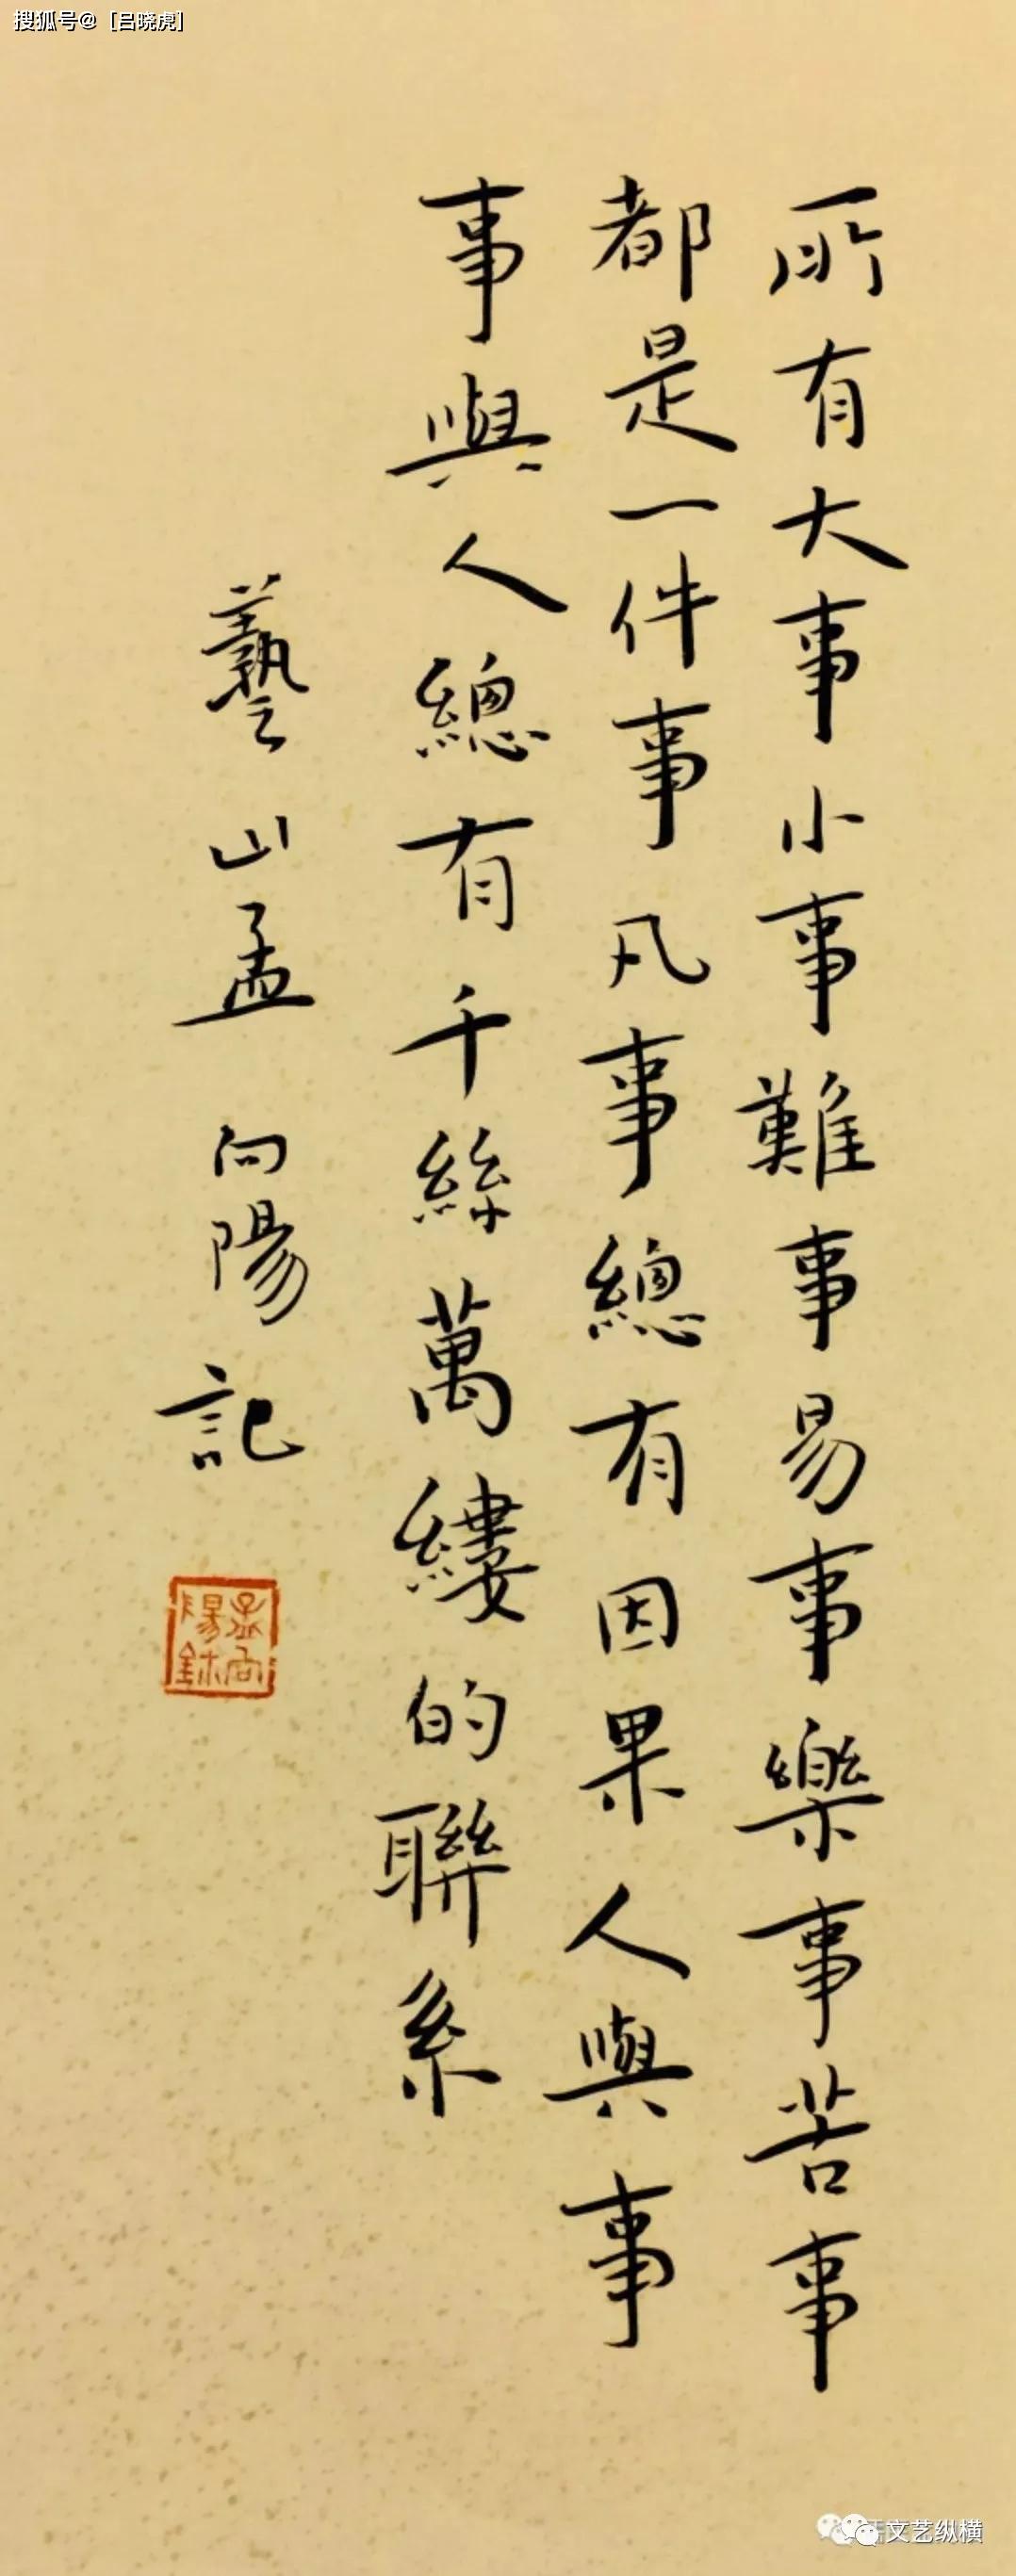 搜狐号@［吕晓虎］
所有大事小事難事易事樂事苦事
都是一件事凡事總有因果人與事
事與人總有千絲萬縷的聯系
藝山孟向陽記
文艺纵横